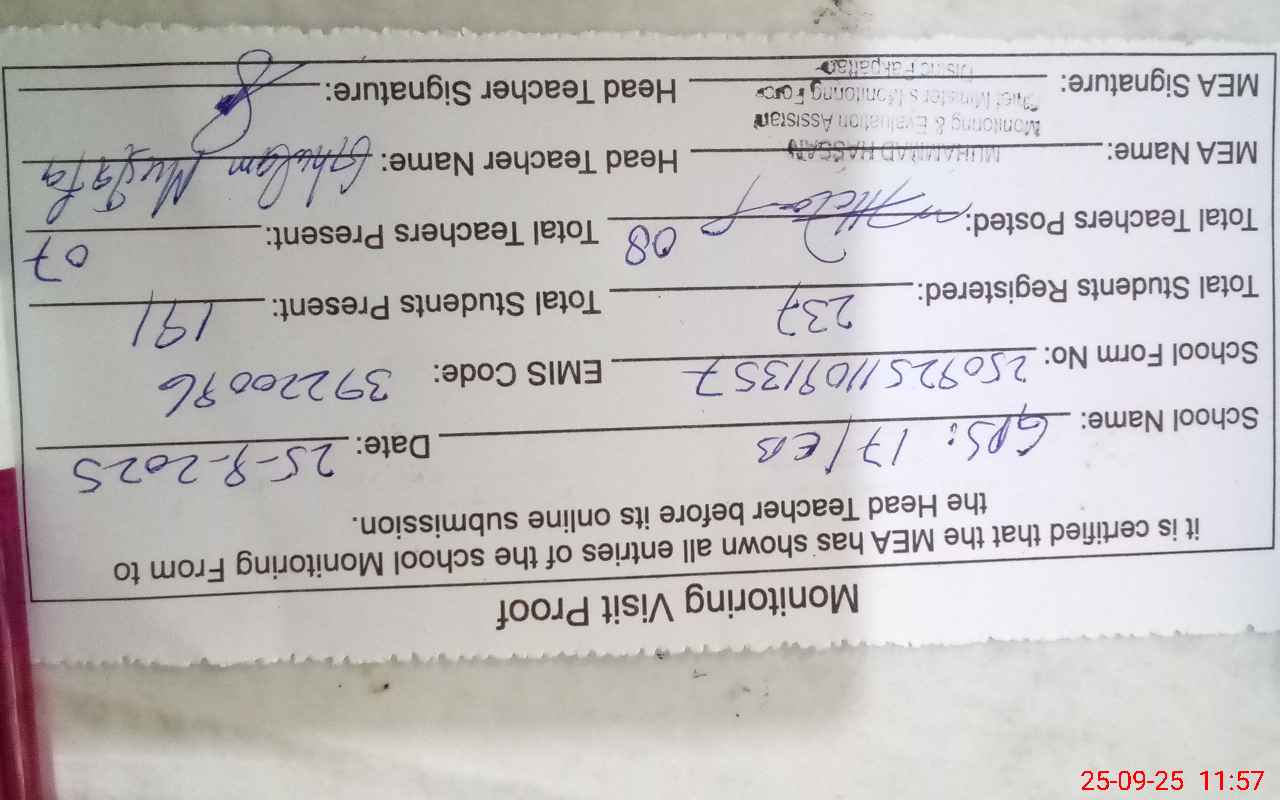 Monitoring Visit Proof
it is certified that the MEA has shown all entries of the school Monitoring From to
the Head Teacher before its online submission.
School Name: GPS: 17/EB Date: 25-9-2025
School Form No: 25092511091357 EMIS Code: 39220096
Total Students Registered: 237 Total Students Present: 191
Total Teachers Posted: 08 Total Teachers Present: 07
MEA Name: MUHAMMAD HASSAN Head Teacher Name: Ghulam Mustafa
Monitoring & Evaluation Assistant
Chief Minister's Monitoring Force
MEA Signature: Head Teacher Signature:
District Pakpattan
25-09-25 11:57